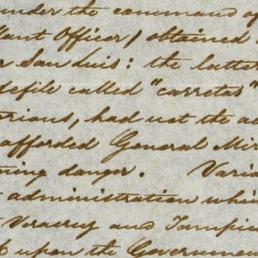 under the command of
lant Officer, obtained
r San Luis: the latter
defile called "carretas"
erious, had not the ac
afforded General Mir
ning danger. Varia
administration whic
Veracruz and Tampic
upon the Governmen